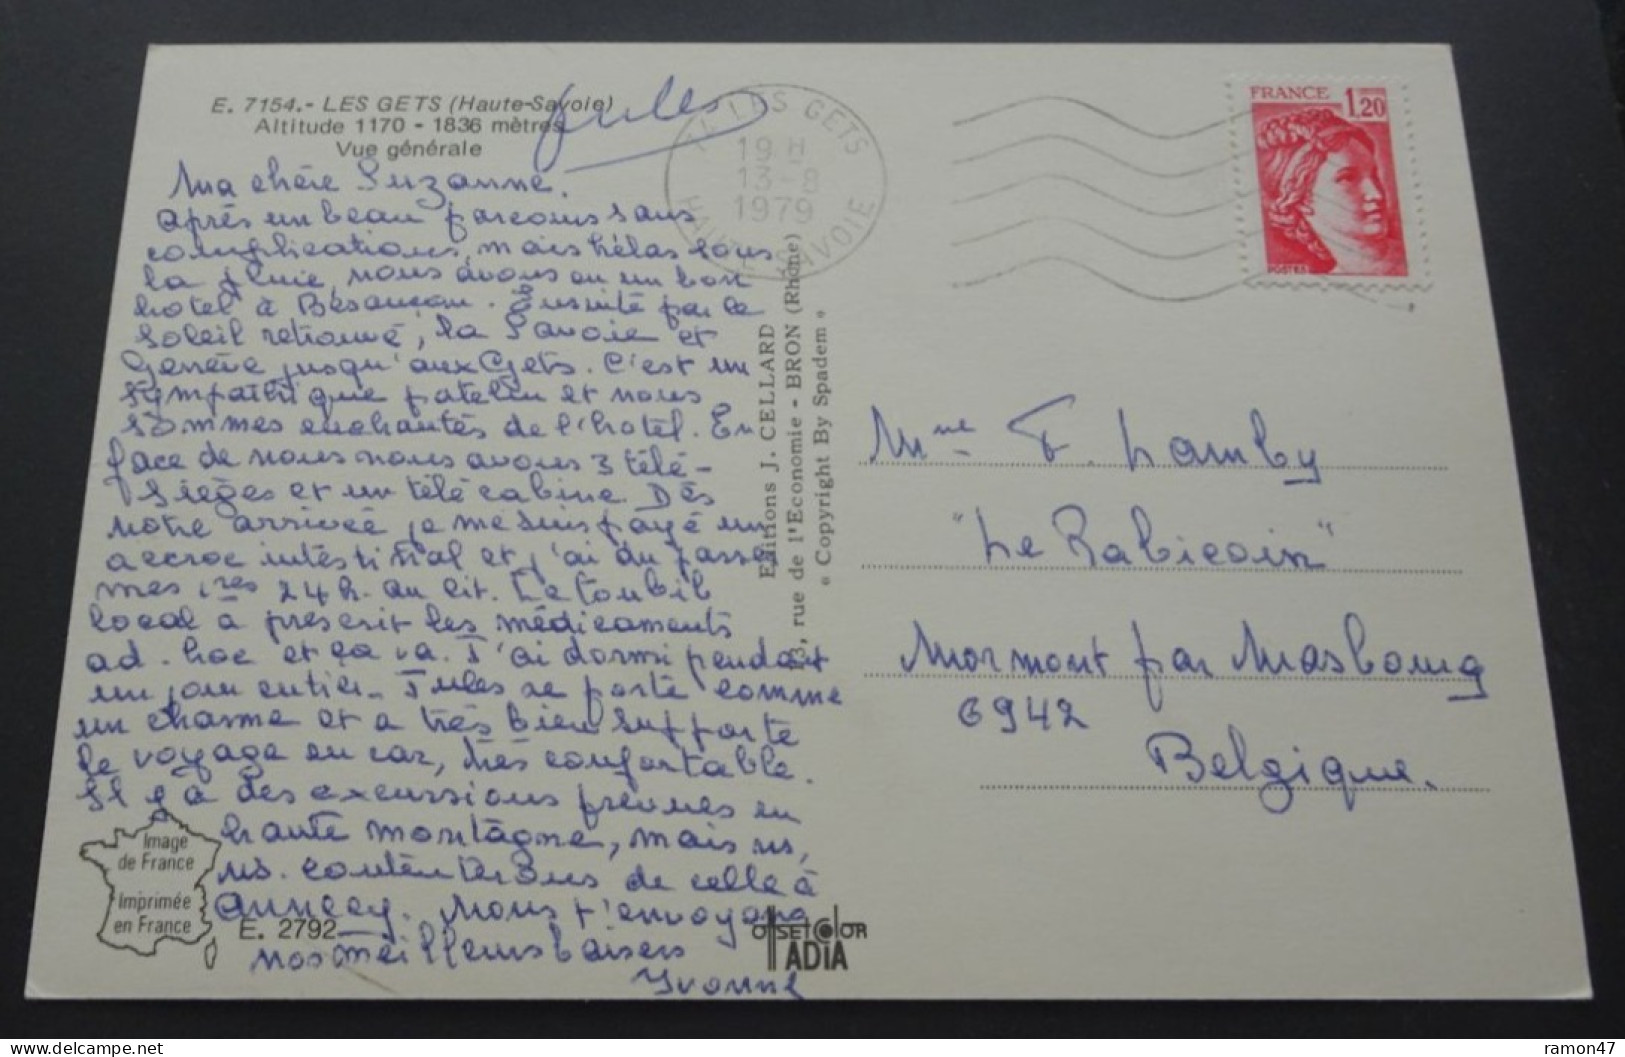 E. 7154.- LES GETS (Haute-Savoie)
Altitude 1170 - 1836 mètres
Vue générale
Jules
74 LES GETS
19 H
13-8
1979
HAUTE SAVOIE
FRANCE
1,20
POSTES
Ma chère Suzanne.
Après un beau parcours sans
complications, mais hélas sous
la pluie, nous avons eu un bon
hotel à Besançon. Ensuite par le
soleil retrouvé, la Savoie et
Genève jusqu'aux Gets. C'est un
sympathique patelin et nous
sommes enchantés de l'hotel. En
face de nous nous avons 3 télé-
sièges et un télécabine. Dès
notre arrivée je me suis payé un
accroc intestinal et j'ai du passer
mes 1res 24 h. au lit. Le toubib
local à prescrit les médicaments
ad-hoc et ça va. J'ai dormi pendant
un jour entier. Jules se porte comme
un charme et a très bien supporté
le voyage en car, très confortable.
Il y a des excursions prévues en
haute montagne, mais ns,
ns. contenterons de celle à
Annecy. Nous t'envoyons
nos meilleurs baisers
Yvonne
Editions J. CELLARD
13, rue de l'Economie - BRON (Rhône)
« Copyright By Spadem »
Mme F. Lamby
"Le Rabicoin"
Mormont par Masbourg
6942
Belgique.
Image
de France
Imprimée
en France
E. 2792
OffSETCOLOR
IADIA
ramon47